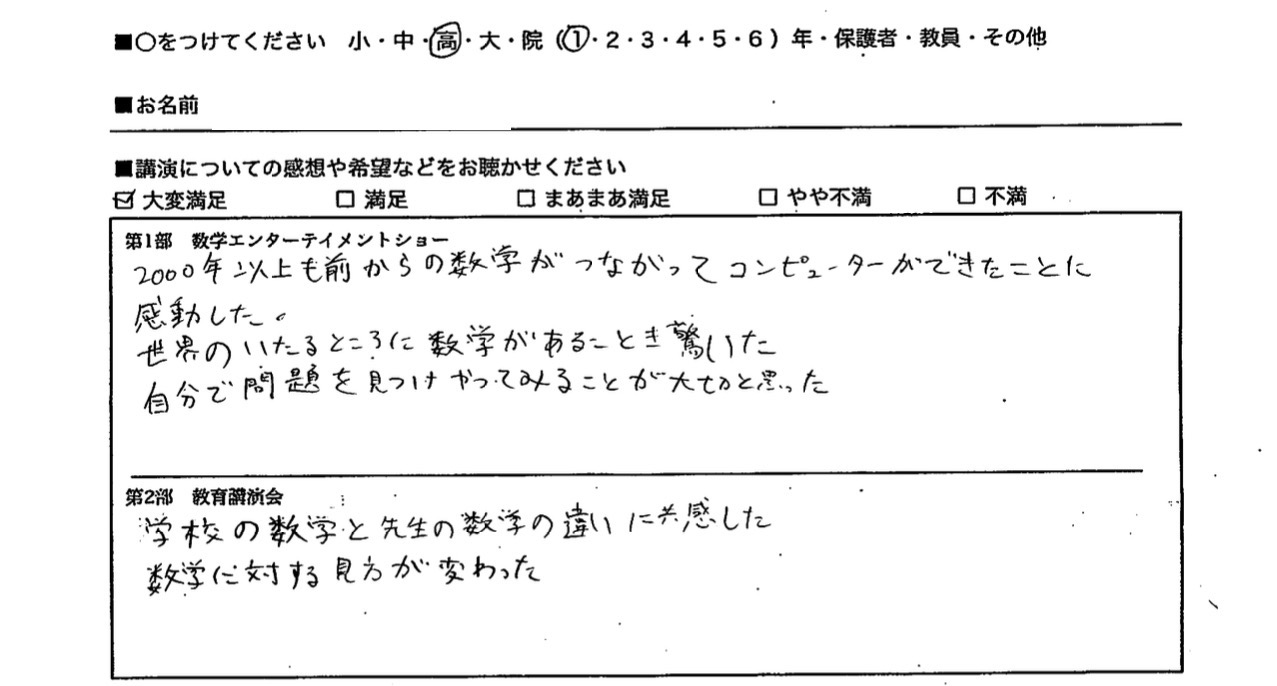 ■○をつけてください 小・中・高・大・院(1・2・3・4・5・6)年・保護者・教員・その他
■お名前
■講演についての感想や希望などをお聴かせください
☑ 大変満足 □ 満足 □ まあまあ満足 □ やや不満 □ 不満
第1部 数学エンターテイメントショー
2000年以上も前からの数学がつながってコンピューターができたことに
感動した。
世界のいたるところに数学があることき驚いた
自分で問題を見つけやってみることが大切と思った
第2部 教育講演会
学校の数学と先生の数学の違いに共感した
数学に対する見方が変わった